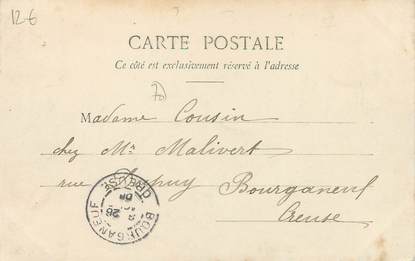 12-6
CARTE POSTALE
Ce côté est exclusivement réservé à l'adresse
Madame Cousin
chez Mr Malivert
rue Dupuy Bourganeuf
Creuse
BOURGANEUF
CREUSE
26